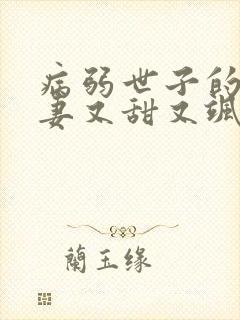 病弱世子的
妻又甜又飒
蘭玉缘